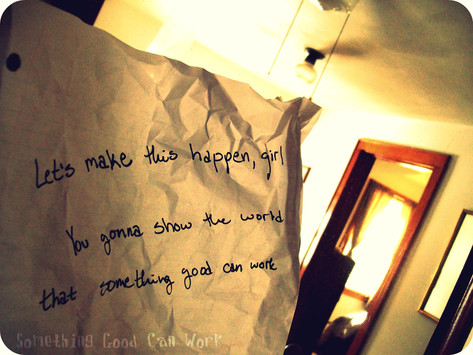 Let's make this happen, girl
You gonna show the world
that something good can work
Something Good Can Work